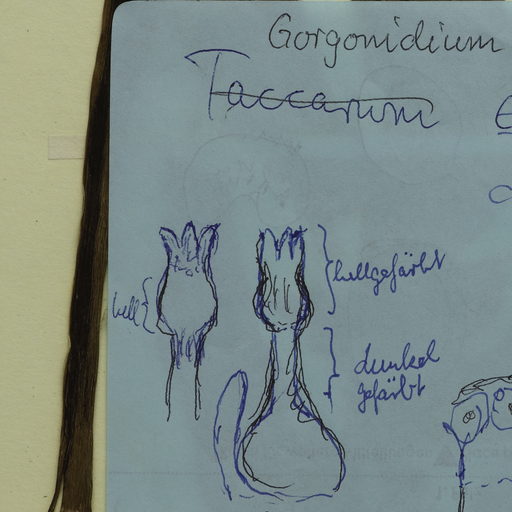 Gorgonidium
Taccarum
hellgefärbt
hell
dunkel
gefärbt